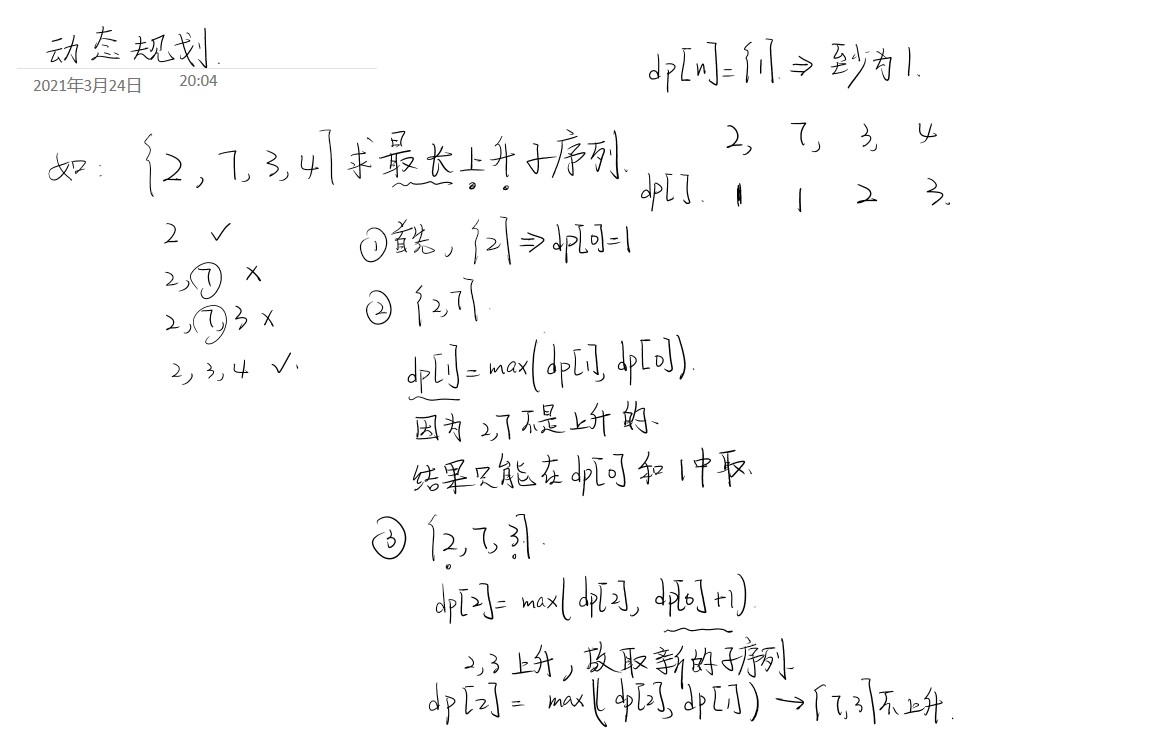 动态规划.
2021年3月24日 20:04
dp[n]={1}. ⇒ 至少为1.
如: {2,7,3,4}求最长上升子序列.
2, 7, 3, 4
dp[]. 1 1 2 3.
2 ✓
2,7 ×
2,7,3 ×
2,3,4 ✓.
①首先, {2}⇒dp[0]=1
② {2,7}.
dp[1]=max(dp[1], dp[0]).
因为 2,7不是上升的、
结果只能在dp[0]和1中取.
③ {2,7,3}.
dp[2]= max(dp[2], dp[0]+1).
2,3上升, 故取新的子序列.
dp[2] = max(dp[2], dp[1]) → {7,3}不上升.